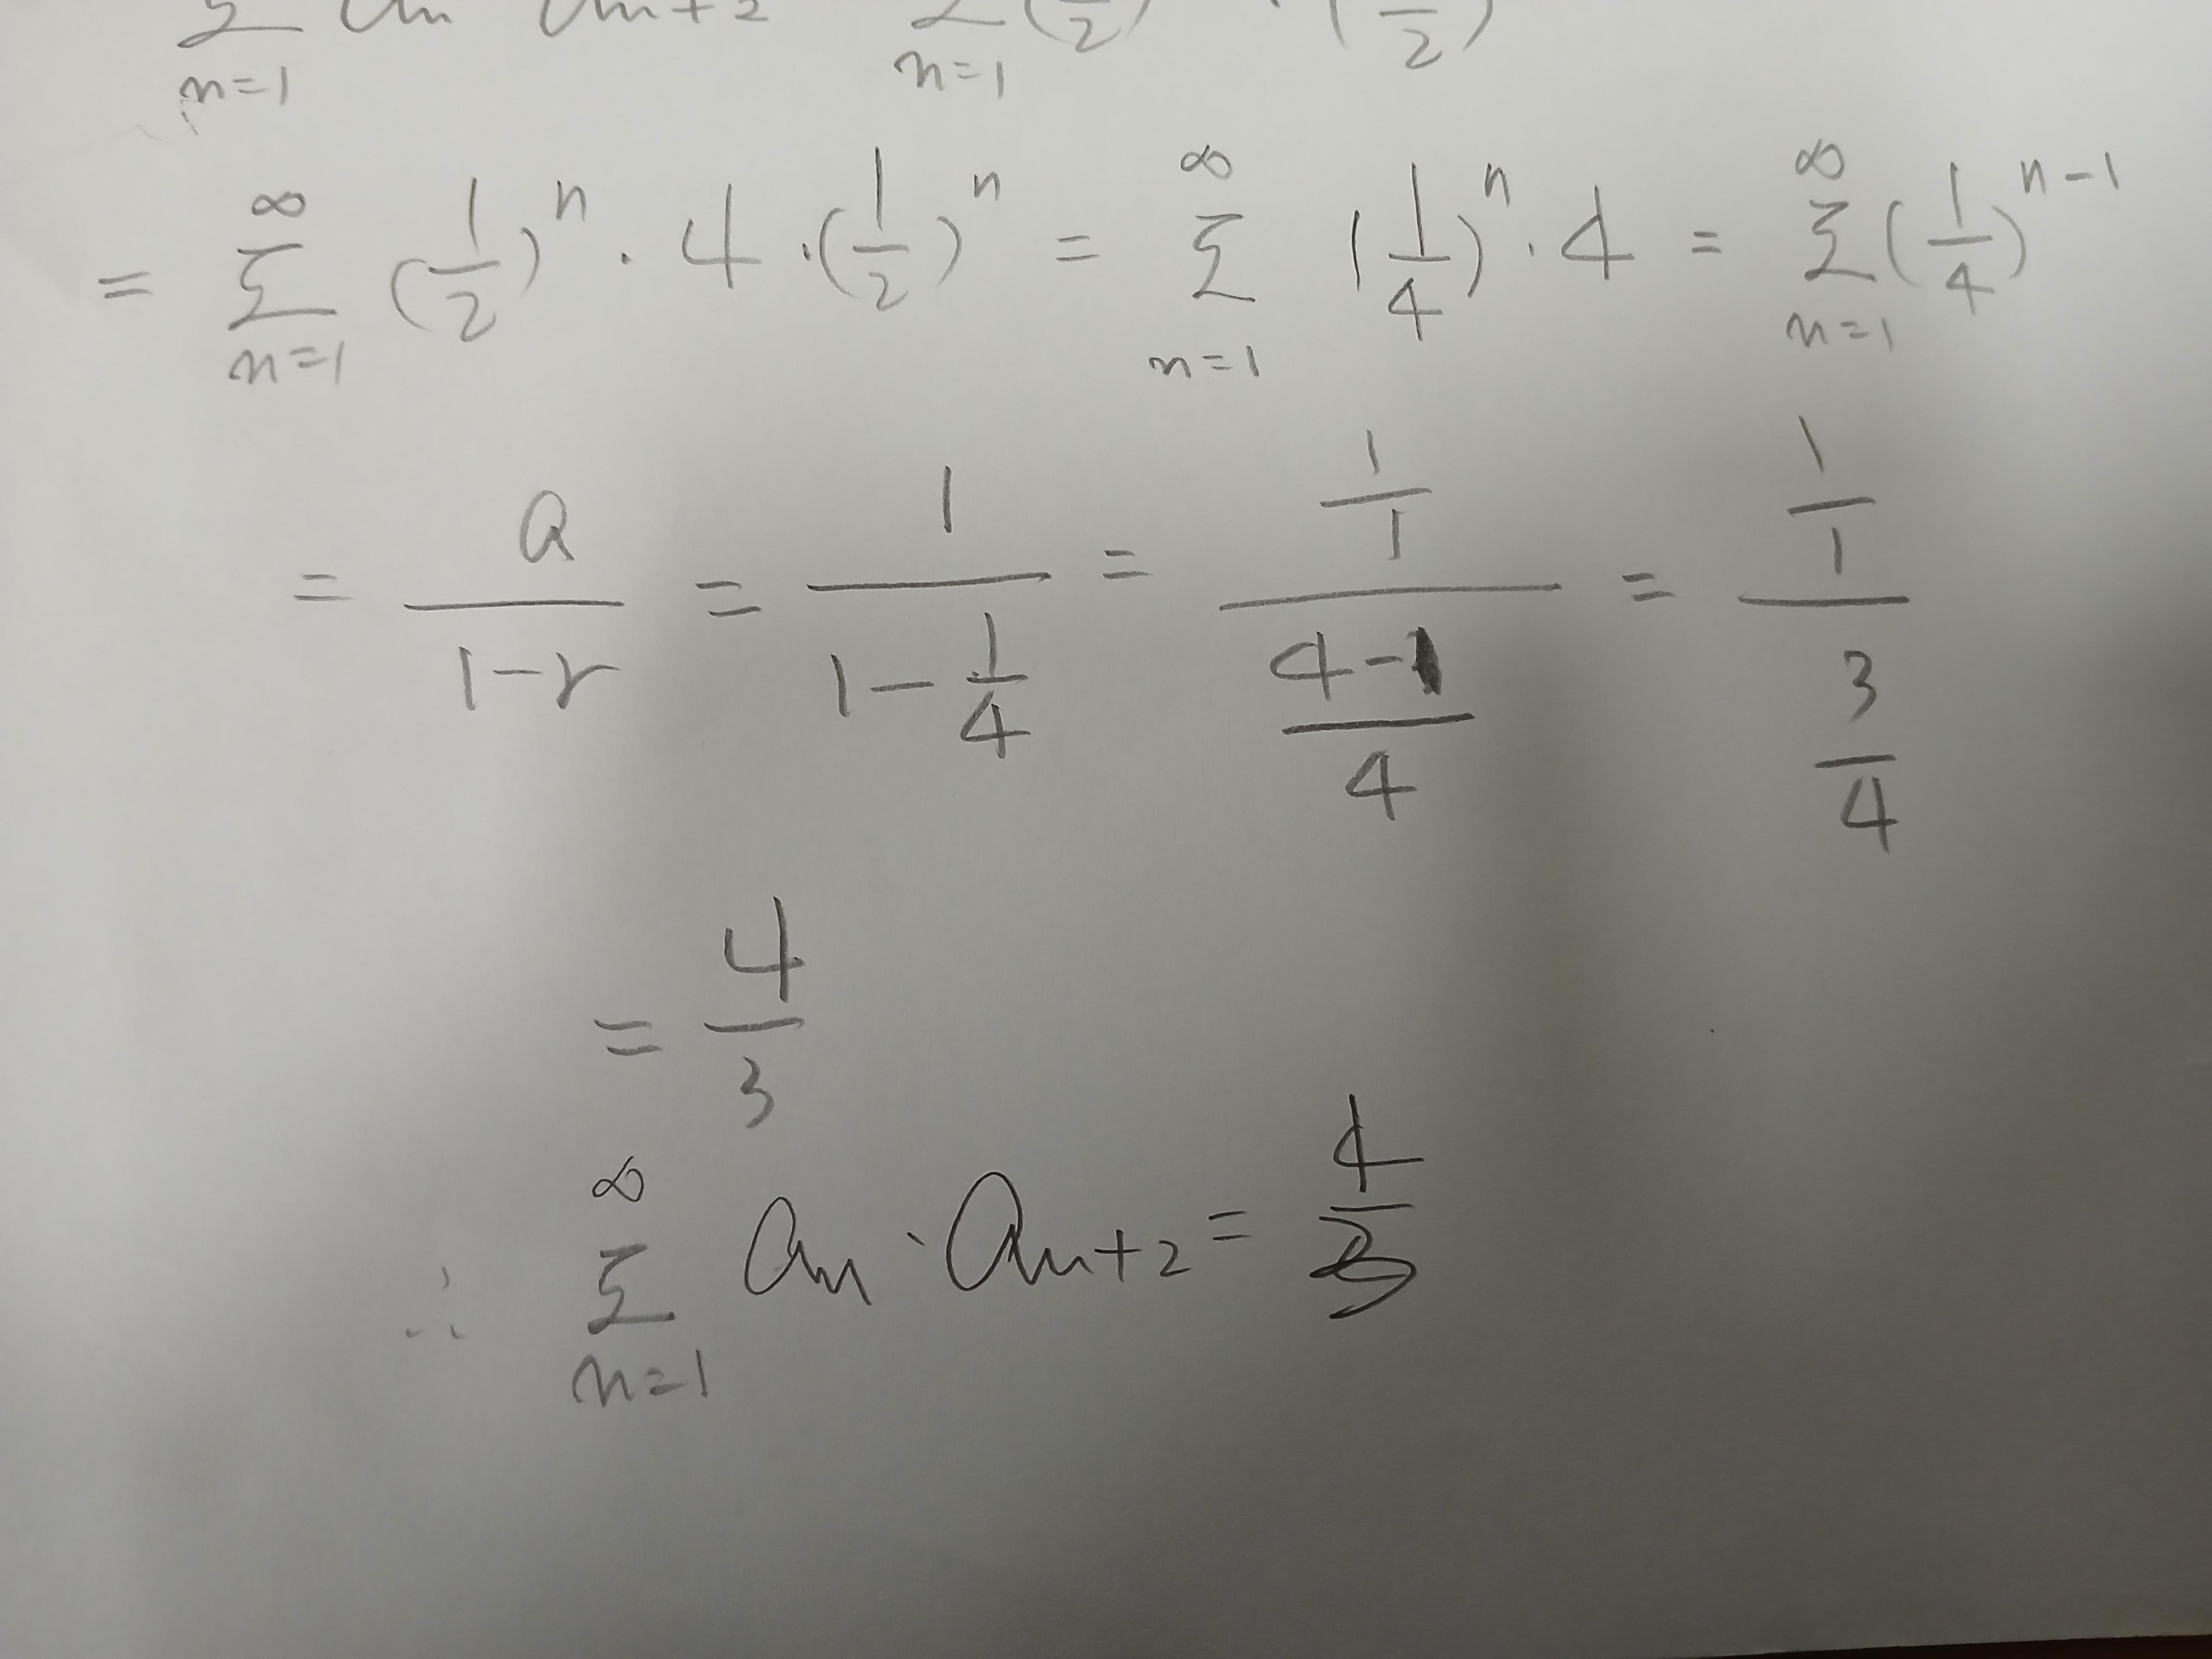 Σ n=1 an an+2 Σ n=1 (/2) · (/2)
= Σ n=1 ∞ (1/2)^n · 4 · (1/2)^n = Σ n=1 ∞ (1/4)^n · 4 = Σ n=1 ∞ (1/4)^n-1
= a/(1-r) = 1/(1-1/4) = (1/1)/((4-1)/4) = (1/1)/(3/4)
= 4/3
∴ Σ n=1 ∞ an · an+2 = 4/3